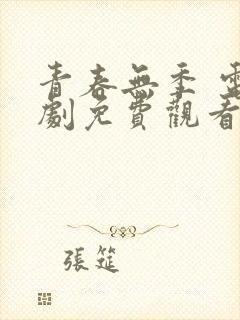 青春無季 電
劇免費觀看
張筵